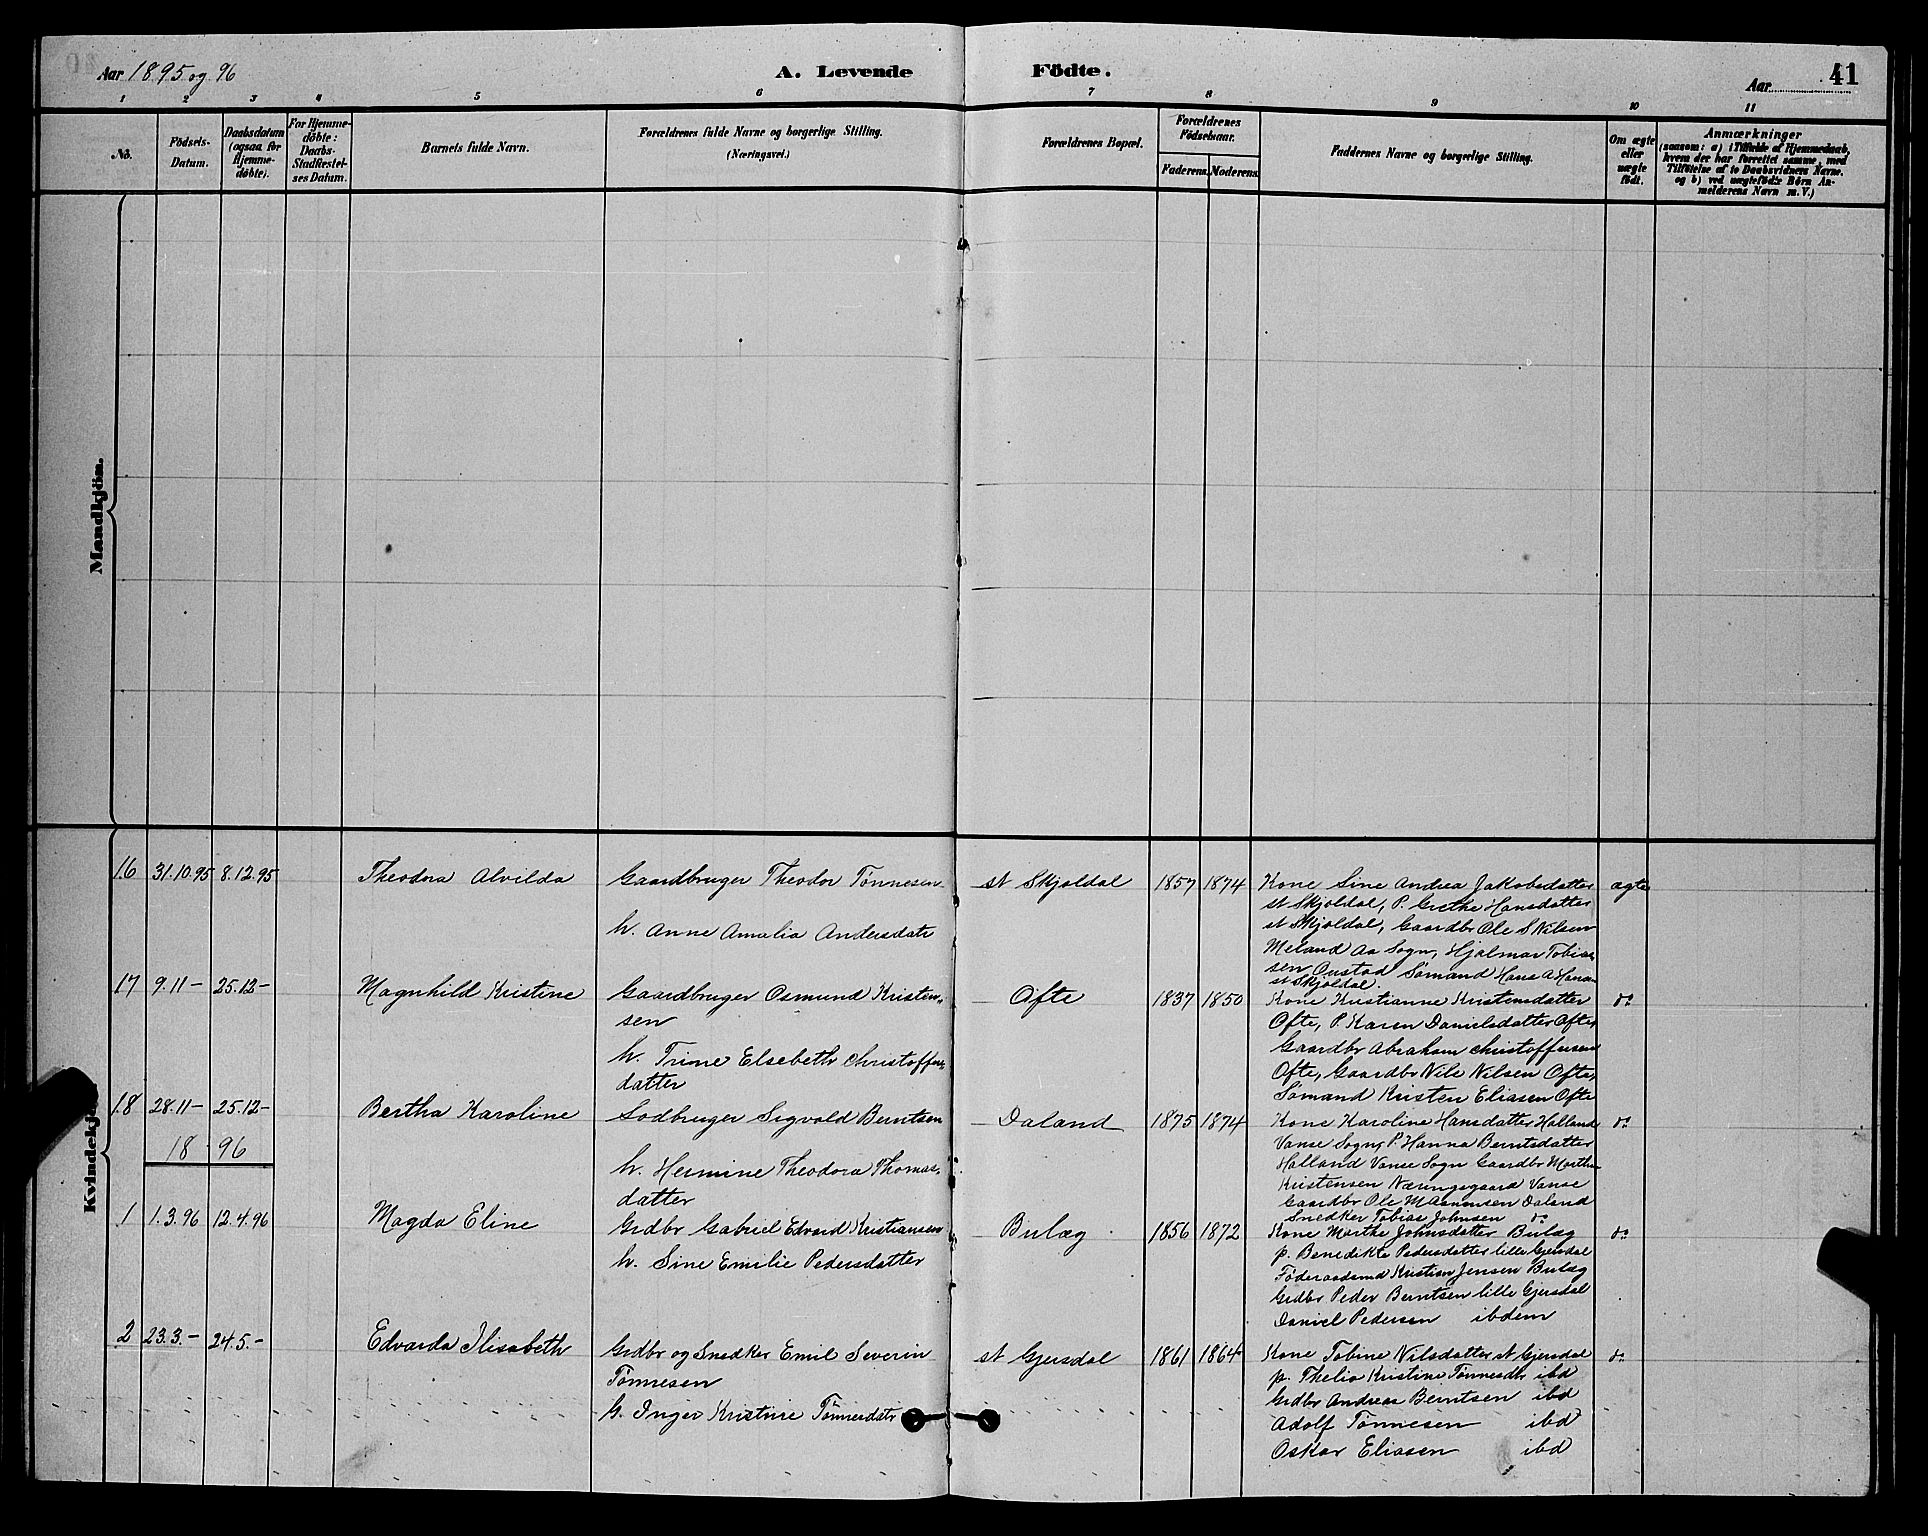 Aar 1895 og 96
A. Levende
Födte.
Aar
41
1 2 3 4 5 6 7 8 9 10 11
No.
Födsels-
Datum.
Daabsdatum
(ogsaa for
Hjemme-
döbte).
For Hjemme-
döbte:
Daabs-
Stadfestel-
ses Datum.
Barnets fulde Navn.
Forældrenes fulde Navne og borgerlige Stilling.
(Næringsvei.)
Forældrenes Bopæl.
Forældrenes
Födselsaar.
Faderens. Moderens.
Faddernes Navne og borgerlige Stilling.
Om ægte
eller
uægte
födt.
Anmærkninger
(saasom: a) i Tilfælde af Hjemmedaab,
hvem der har forrettet samme, med
Tilföielse af to Daabsvidners Navne.
og b) ved uægtefödte Börn An-
melderens Navn m. V.)
Mandkjön.
Kvindekjön.
16 31.10.95 8.12.95
Theodora Alvilda
Gaardbruger Theodor Tönnesen
h. Anne Amalia Andersdatr
st Skjoldal
1857 1874
Kone Sine Andrea Jakobsdatter
st Skjoldal, P. Grethe Hansdatter
st Skjoldal, Gaardbr Ole S Nilsen
Meland Aa Sogn, Hjalmar Tobias
sen Sömand Hans A
st Skjoldal.
ægte
17 9.11- 25.12-
Magnhild Kristine
Gaardbruger Osmund Kristen-
sen
h. Trine Elsebeth Christoffers-
datter
Ofte
1837 1850
Kone Kristianne Kristensdatter
Ofte, P. Karen Danielsdatter Ofte,
Gaardbr Abraham Christoffersen
Ofte, Gaardbr Nils Nilsen Ofte,
Sömand Kristen Eliassen Ofte
do
18 28.11- 25.12-
Bertha Karoline
Lodbruger Sigvald Berntsen
h. Hermine Theodora Thomas-
datter
Daland
1875 1874
Kone Karoline Hansdatter Halland
Vanse Sogn, P. Hanna Berntsdatter
Halland Vanse Sogn Gaardbr
Kristensen Næringsgaard Vanse
Gaardbr Ole M Daland
Snedker Tobias Johnsen do
do
18 96
1 1.3.96 12.4.96
Magda Eline
Grdbr Gabriel Edvard Kristiansen
h. Sine Emilie Pedersdatter
Bulæg
1856 1872
Kone Marthe Johnsdatter Bulæg
p. Benedikte Pedersdatter lille Gjersdal
Föderaadsmd Kristian Jensen Bulæg
Grdbr Peder Berntsen lille Gjersdal
Daniel Pedersen ibdem
do
2 23.3- 24.5-
Edvarda Ilisabeth
Grdbr og Snedker Emil Severin
Tönnesen
h. Inger Kristine Tönnesdatr
st Gjersdal
1861 1864
Kone Tobine Nilsdatter st Gjersdal
p. Thelia Kristine Tönnesdtr ibd
Grdbr Andreas Berntsen ibd
Adolf Tönnesen ibd
Oskar Eliasen ibd
do